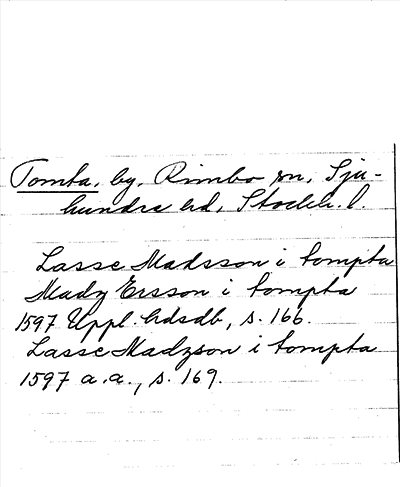 Tomta, by, Rimbo sn, Sju-
hundra hd, Stockh. l.
Lasse Madsson i tompta
Mady Ersson i tompta
1597 Uppl. hdsdb, s. 166.
Lasse Madzson i tompta
1597 a.a., s. 169.